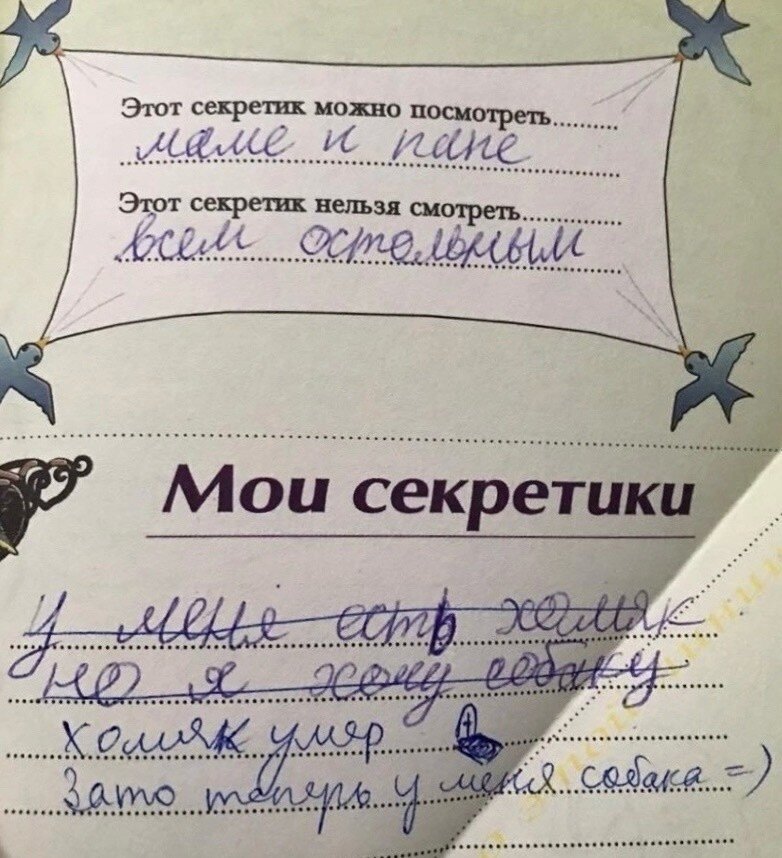 Этот секретик можно посмотреть..........
маме и папе
Этот секретик нельзя смотреть...............
всем остальным
Мои секретики
у меня есть хомяк
но я хочу собаку
хомяк умер
Зато теперь у меня собака =)